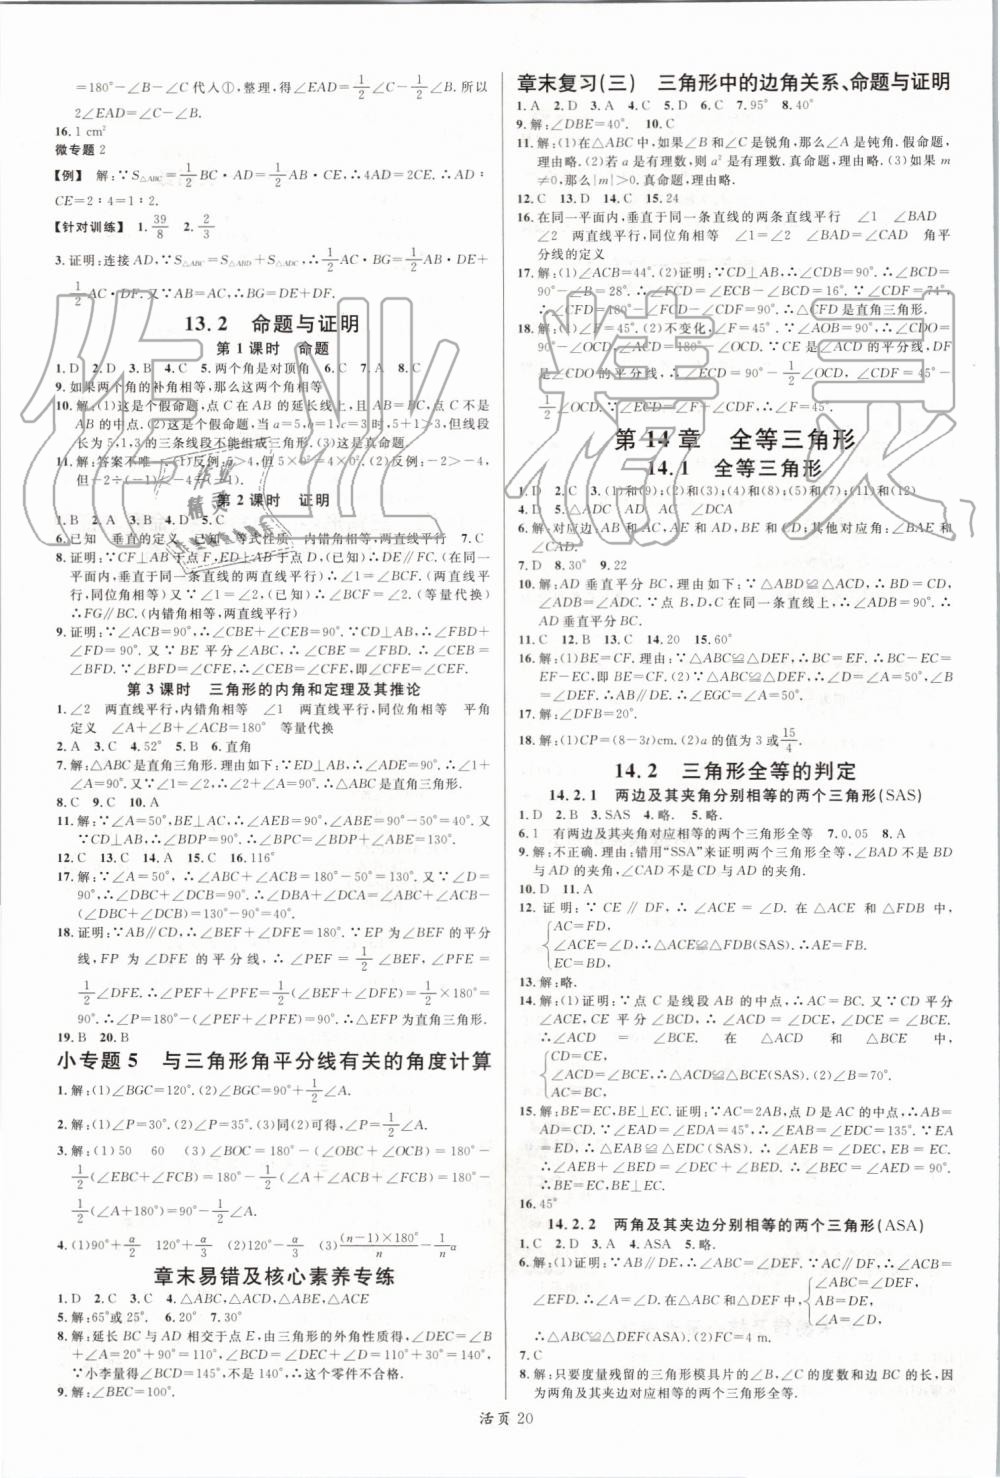 =180°-∠B-∠C代人①,整理,得∠EAD=1/2∠C-1/2∠B. 所以
2∠EAD=∠C-∠B.
16.1 cm²
微专题2
【例】 解:∵S△ABC=1/2BC·AD=1/2AB·CE,∴4AD=2CE.∴AD:
CE=2:4=1:2.
【针对训练】 1.39/8 2.2/3
3.证明:连接AD,∵S△ABC=S△ABD+S△ADC,∴1/2AC·BG=1/2AB·DE+
1/2AC·DF.又∵AB=AC,∴BG=DE+DF.
13.2 命题与证明
第1课时 命题
1.D 2.D 3.B 4.C 5.两个角是对顶角 6.C 7.A 8.C
9.如果两个角的补角相等,那么这两个角相等
10.解:(1)这是个假命题,点C在AB的延长线上,且AB=BC,点C不是
AB的中点.(2)这是个假命题,当a=5,b=1,c=3时,a+b>c,但线段
长为5,1,3的三条线段不能组成三角形.(3)这是真命题.
11.解:答案不唯一.(1)反例:如5×0=4×0,但5≠4.(2)反例:-2>-4,
第2课时 证明
1.B 2.A 3.B 4.D 5.C
6.已知 垂直的定义 已知 等式性质 内错角相等,两直线平行 7.C
8.证明:∵CF⊥AB于点F,ED⊥AB于点D,(已知)∴DE∥FC.(在同一
平面内,垂直于同一条直线的两直线平行)∴∠1=∠BCF.(两直线平
行,同位角相等)又∵∠1=∠2,(已知)∴∠BCF=∠2.(等量代换)
∴FG∥BC.(内错角相等,两直线平行)
9.证明:∵∠ACB=90°,∴∠CBE+∠CEB=90°.∵BD⊥AF,∴∠FBD+
∠BFD=90°.又∵BE平分∠ABC,∴∠CBE=∠FBD.∴∠CEB=
∠BFD.∵∠BFD=∠CFE,∴∠CEB=∠CFE,即∠CFE=∠CEF.
第3课时 三角形的内角和定理及其推论
1.∠2 两直线平行,内错角相等 ∠1 两直线平行,同位角相等 平角
定义 ∠A+∠B+∠ACB=180° 等量代换
2.A 3.C 4.52° 5.B 6.直角
7.解:△ABC是直角三角形.理由如下:∵ED⊥AB,∴∠ADE=∠1+
∠A=90°.又∵∠1=∠2,∴∠2+∠A=90°.∴△ABC是直角三角形.
8.C 9.C 10.A
11.解:∵∠A=50°,BE⊥AC,∴∠AEB=90°,∠ABE=90°-50°=40°.又
∵CD⊥AB,∴∠BDP=90°.∴∠BPC=∠ABE+∠BDP=130°.
12.C 13.C 14.A 15.C 16.116°
17.解:∵∠A=50°,∴∠ABC+∠ACB=180°-50°=130°.∵∠D=90°,
∴∠DBC+∠DCB=90°.∴∠DBA+∠DCA=∠ABC+∠ACB-
(∠DBC+∠DCB)=130°-90°=40°.
18.证明:∵AB∥CD,∴∠BEF+∠DFE=180°.∵EP为∠BEF的平分
线,FP为∠DFE的平分线,∴∠PEF=1/2∠BEF,∠PFE=
1/2∠DFE.∴∠PEF+∠PFE=1/2(∠BEF+∠DFE)=1/2×180°=
90°.∴∠P=180°-(∠PEF+∠PFE)=90°.∴△EFP为直角三角形.
19.B 20.B
小专题5 与三角形角平分线有关的角度计算
1.解:(1)∠BGC=120°.(2)∠BGC=90°+1/2∠A.
2.解:(1)∠P=30°.(2)∠P=35°.(3)同(2)可得,∠P=1/2∠A.
3.解:(1)50 60 (3)∠BOC=180°-(∠OBC+∠OCB)=180°-
1/2(∠EBC+∠FCB)=180°-1/2(∠A+∠ACB+∠A+∠ABC)=180°-
1/2(∠A+180°)=90°-1/2∠A.
4.(1)90°+α/2 120°+α/3 (2)120°-α/3 (3)(n-1)×180°/n-1/nα
章末易错及核心素养专练
1.D 2.C 3.C 4.△ABC,△ACD,△ABE,△ACE
5.解:65°或25°. 6.20° 7.30°
8.解:延长BC与AD相交于点E,由三角形的外角性质得,∠DEC=∠B
+∠A=20°+90°=110°,∴∠BCD=∠DEC+∠D=110°+35°=145°.
∵小李量得∠BCD=145°,不是140°,∴这个零件不合格.
9.解:∠BEC=100°.
章末复习(三) 三角形中的边角关系、命题与证明
1.A 2.D 3.A 4.C 5.D 6.C 7.95° 8.40°
9.解:∠DBE=40°. 10.C
11.解:(1)在△ABC中,如果∠B和∠C是锐角,那么∠A是钝角.假命题,
理由略.(2)若a是有理数,则a²是有理数.真命题,理由略.(3)如果m
≠0,那么|m|>0.真命题,理由略.
12.C 13.D 14.C 15.24
16.在同一平面内,垂直于同一条直线的两条直线平行 ∠1 ∠BAD
∠2 两直线平行,同位角相等 ∠1=∠2 ∠BAD=∠CAD 角平
分线的定义
17.解:(1)∠ACB=44°.(2)证明:∵CD⊥AB,∴∠CDB=90°.∴∠BCD=
90°-∠B=28°.∴∠FCD=∠ECB-∠BCD=16°.∵∠CDF=74°,
∴∠CFD=180°-∠FCD-∠CDF=90°.∴△CFD是直角三角形.
18.解:(1)∠F=45°.(2)不变化,∠F=45°.∵∠AOB=90°,∴∠CDO=
90°-∠OCD,∠ACD=180°-∠OCD.∵CE是∠ACD的平分线,DF
是∠CDO的平分线,∴∠ECD=90°-1/2∠OCD,∠CDF=45°-
1/2∠OCD.∵∠ECD=∠F+∠CDF,∴∠F=45°.
第14章 全等三角形
14.1 全等三角形
1.D 2.C 3.(1)和(9);(2)和(3);(4)和(8);(5)和(7);(11)和(12)
4.D 5.△ADC AD AC ∠DCA
6.解:对应边:AB和AC,AE和AD,BE和CD;其他对应角:∠BAE和
∠CAD.
7.D 8.30° 9.22
10.解:AD垂直平分BC,理由如下:∵△ABD≌△ACD,∴BD=CD,
∠ADB=∠ADC.∵点B,D,C在同一条直线上,∴∠ADB=90°.∴
AD垂直平分BC.
11.C 12.B 13.C 14.20 15.60°
16.解:(1)BE=CF.理由:∵△ABC≌△DEF,∴BC=EF.∴BC-EC=
EF-EC,即BE=CF.(2)∠ACF=∠D+∠DEF.理由:∵△ABC≌
△DEF,∴∠A=∠D,∠B=∠DEF.∵∠ACF=∠A+∠B,∴∠ACF
17.解:∠DFB=20°.
18.解:(1)CP=(8-3t)cm.(2)a的值为3或15/4.
14.2 三角形全等的判定
14.2.1 两边及其夹角分别相等的两个三角形(SAS)
1.D 2.B 3.SAS 4.略. 5.略.
6.1 有两边及其夹角对应相等的两个三角形全等 7.0.05 8.A
9.解:不正确.理由:错用“SSA”来证明两个三角形全等,∠BAD不是BD
与AD的夹角,∠CAD不是CD与AD的夹角.
10.D 11.A
12.证明:∵CE∥DF,∴∠ACE=∠D.在△ACE和△FDB中,
AC=FD,
∠ACE=∠D,∴△ACE≌△FDB(SAS).∴AE=FB.
EC=BD,
13.解:略.
14.解:(1)证明:∵点C是线段AB的中点,∴AC=BC.又∵CD平分
∠ACE,CE平分∠BCD,∴∠ACD=∠DCE,∠DCE=∠BCE.
∴∠ACD=∠BCE.在△ACD和△BCE中,AC=BC,
∠ACD=∠BCE,
DC=EC,
∴△ACD≌△BCE(SAS).(2)∠B=70°.
15.解:BE=EC,BE⊥EC.证明:∵AC=2AB,点D是AC的中点,∴AB=
AD=CD.∵∠EAD=∠EDA=45°,∴∠EAB=∠EDC=135°.∵EA
=ED,∴△EAB≌△EDC(SAS).∴∠AEB=∠DEC,EB=EC.
∴∠AEB+∠BED=∠DEC+∠BED.∴∠BEC=∠AED=90°.
∴BE=EC,BE⊥EC.
16.45°
14.2.2 两角及其夹边分别相等的两个三角形(ASA)
1.C 2.D 3.A 4.ASA 5.略.
6.解:(1)证明:∵AB∥DE,∴∠ABC=∠DEF.在△ABC和△DEF中,
∠ABC=∠DEF,
AB=DE,
∠A=∠D,
∴△ABC≌△DEF(ASA).(2)FC=4 m.
7.C
8.解:只要度量残留的三角形模具片的∠B,∠C的度数和边BC的长,因
为两角及其夹边对应相等的两个三角形全等.
活页 20